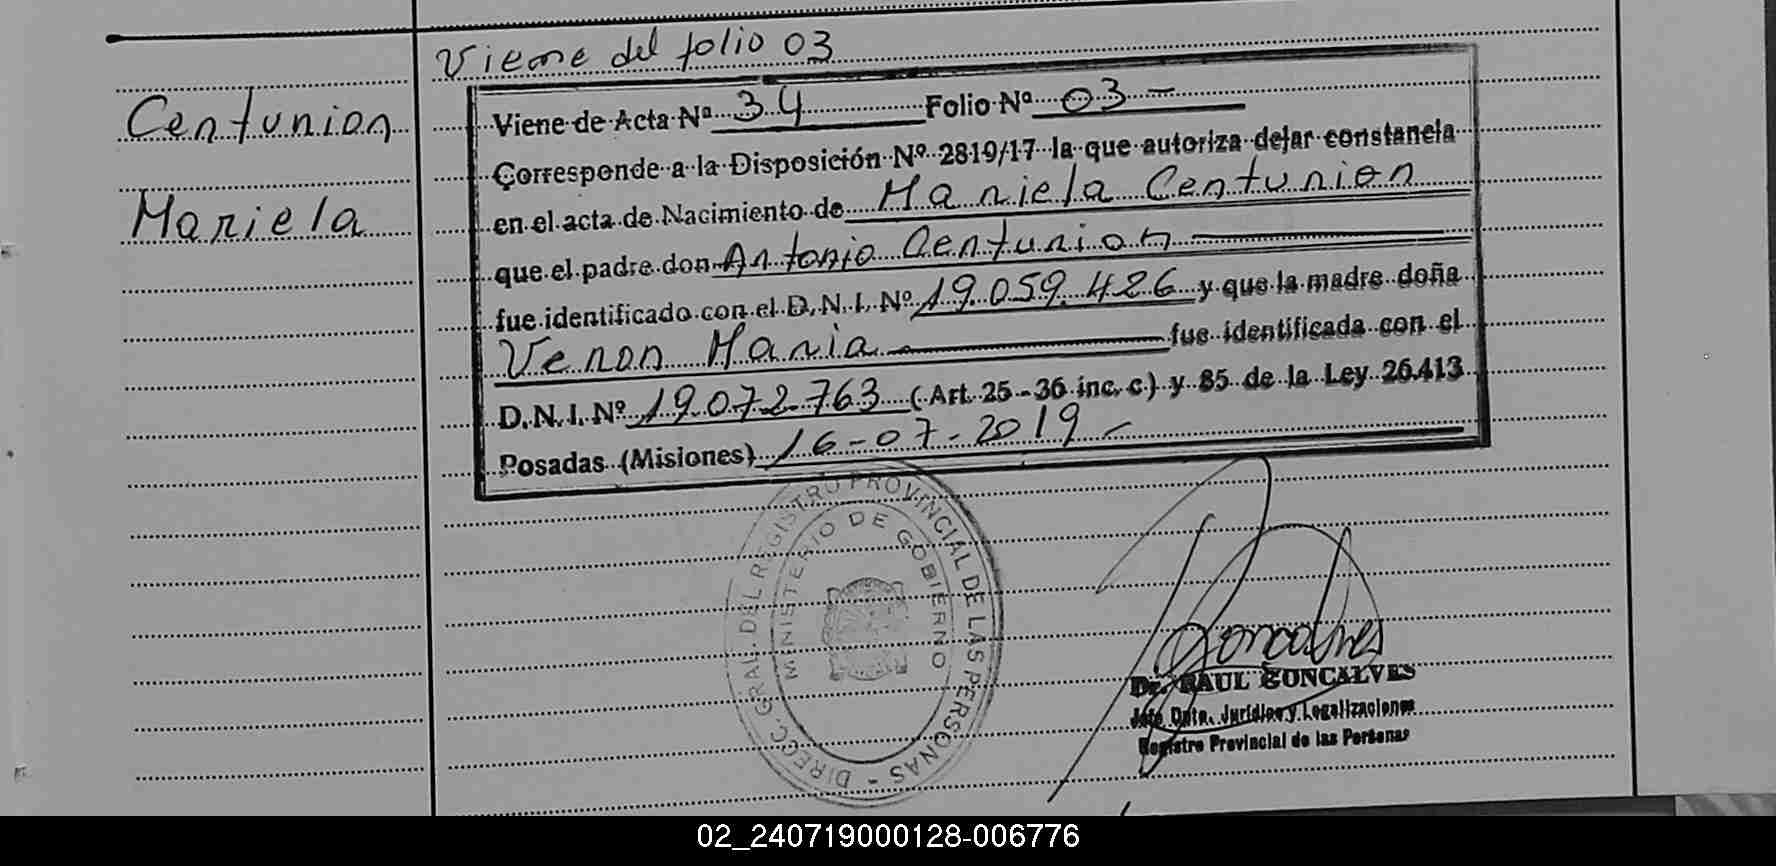 Viene del folio 03
Centurion
Mariela
Viene de Acta Nº 34 Folio Nº 03 -
Corresponde a la Disposición Nº 2819/17 la que autoriza dejar constancia
en el acta de Nacimiento de Mariela Centurion
que el padre don Antonio Centurion
fue identificado con el D.N.I. Nº 19.059.426 y que la madre doña
Veron Maria fue identificada con el
D.N.I. Nº 19.072.763 (Art. 25-36 inc. c) y 85 de la Ley 26.413
Posadas (Misiones) 16-07-2019-
DIRECC. GRAL. DEL REGISTRO PROVINCIAL DE LAS PERSONAS -
MINISTERIO DE GOBIERNO
Goncalves
Dr. RAUL GONCALVES
Jefe Dpto. Jurídico y Legalizaciones
Registro Provincial de las Personas
02_240719000128-006776